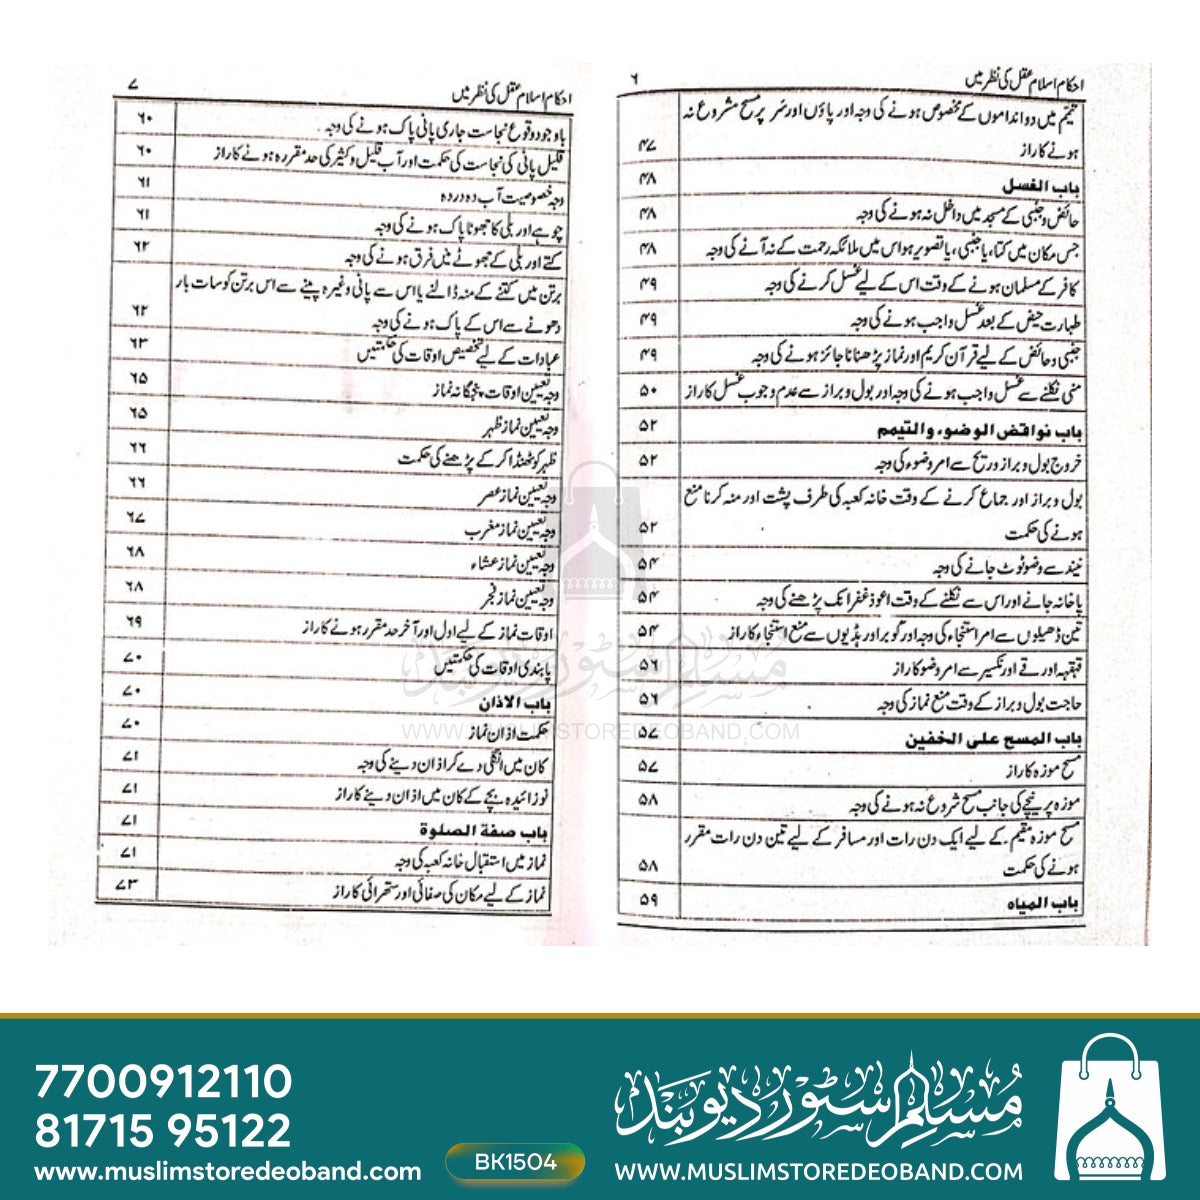 احکام اسلام عقل کی نظر میں
۶
تیمّم میں دو انداموں کے مخصوص ہونے کی وجہ اور پاؤں اور سَر پر مسح مشروع نہ
ہونے کا راز
۴۷
باب الغسل
۴۸
حائض و جنبی کے مسجد میں داخل نہ ہونے کی وجہ
۴۸
جس مکان میں کتا، یا جنبی، یا تصویر ہو اس میں ملائکہ رحمت کے نہ آنے کی وجہ
۴۸
کافر کے مسلمان ہونے کے وقت اس کے لیے غسل کرنے کی وجہ
۴۹
طہارت حیض کے بعد غسل واجب ہونے کی وجہ
۴۹
جنبی و حائض کے لیے قرآن کریم اور نماز پڑھنا ناجائز ہونے کی وجہ
۴۹
منی نکلنے سے غسل واجب ہونے کی وجہ اور بول و براز سے عدم وجوب غسل کا راز
۵۰
باب نواقض الوضوء والتیمم
۵۲
خروج بول و براز و ریح سے امر وضوء کی وجہ
۵۲
بول و براز اور جماع کرنے کے وقت خانہ کعبہ کی طرف پشت اور منہ کرنا منع
ہونے کی حکمت
۵۲
نیند سے وضو ٹوٹ جانے کی وجہ
۵۴
پاخانہ جانے اور اس سے نکلنے کے وقت اعوذ غفرانک پڑھنے کی وجہ
۵۴
تین ڈھیلوں سے امر استنجاء کی وجہ اور گوبر اور ہڈیوں سے منع استنجاء کا راز
۵۴
قہقہہ اور قے اور نکسیر سے امر وضو کا راز
۵۶
حاجت بول و براز کے وقت منع نماز کی وجہ
۵۶
باب المسح علی الخفین
۵۷
مسح موزہ کا راز
۵۷
موزہ پر نیچے کی جانب مسح مشروع نہ ہونے کی وجہ
۵۸
مسح موزہ مقیم کے لیے ایک دن رات اور مسافر کے لیے تین دن رات مقرر
ہونے کی حکمت
۵۸
باب المیاه
۵۹
احکام اسلام عقل کی نظر میں
۷
باوجود وقوع نجاست جاری پانی پاک ہونے کی وجہ
۶۰
قلیل پانی کی نجاست کی حکمت اور آب قلیل و کثیر کی حد مقرر ہ ہونے کا راز
۶۰
وجہ خصوصیت آب دہ در دہ
۶۱
چوہے اور بلی کا جھوٹا پاک ہونے کی وجہ
۶۱
کتے اور بلی کے جھوٹے میں فرق ہونے کی وجہ
۶۲
برتن میں کتنے کے منہ ڈالنے یا اس سے پانی وغیرہ پینے سے اس برتن کو سات بار
دھونے سے اس کے پاک ہونے کی وجہ
۶۲
عبادات کے لیے تخصیص اوقات کی حکمتیں
۶۳
وجہ تعیین اوقات پنجگانہ نماز
۶۵
وجہ تعیین نماز ظہر
۶۵
ظہر کو ٹھنڈا کر کے پڑھنے کی حکمت
۶۶
وجہ تعیین نماز عصر
۶۶
وجہ تعیین نماز مغرب
۶۷
وجہ تعیین نماز عشاء
۶۸
وجہ تعیین نماز فجر
۶۸
اوقات نماز کے لیے اول اور آخر حد مقرر ہونے کا راز
۶۹
پابندی اوقات کی حکمتیں
۷۰
باب الاذان
۷۰
حکمت اذان نماز
۷۰
کان میں انگلی دے کر اذان دینے کی وجہ
۷۱
نوزائیدہ بچے کے کان میں اذان دینے کا راز
۷۱
باب صفة الصلوة
۷۱
نماز میں استقبال خانہ کعبہ کی وجہ
۷۱
نماز کے لیے مکان کی صفائی اور ستھرائی کا راز
۷۳
مسلم سٹور دیوبند
WWW.MUSLIMSTOREDEOBAND.COM
7700912110
81715 95122
www.muslimstoredeoband.com
BK1504
مسلم سٹور دیوبند
WWW.MUSLIMSTOREDEOBAND.COM